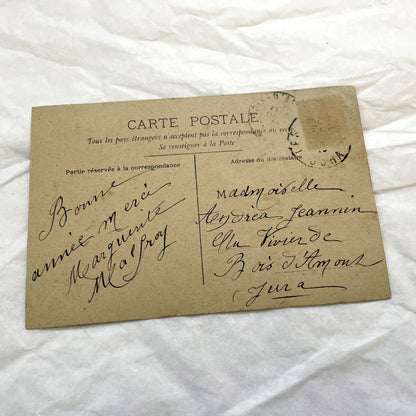 CARTE POSTALE
Tous les pays étrangers n'acceptent pas la correspondance au
Se renseigner à la Poste
Partie réservée à la correspondance
Adresse du destinataire
Bonne
année merci
Marguerite
Malfroy
Madmoiselle
Andréa Jeannin
Au Vivier de
Bois d'Amont
Jura